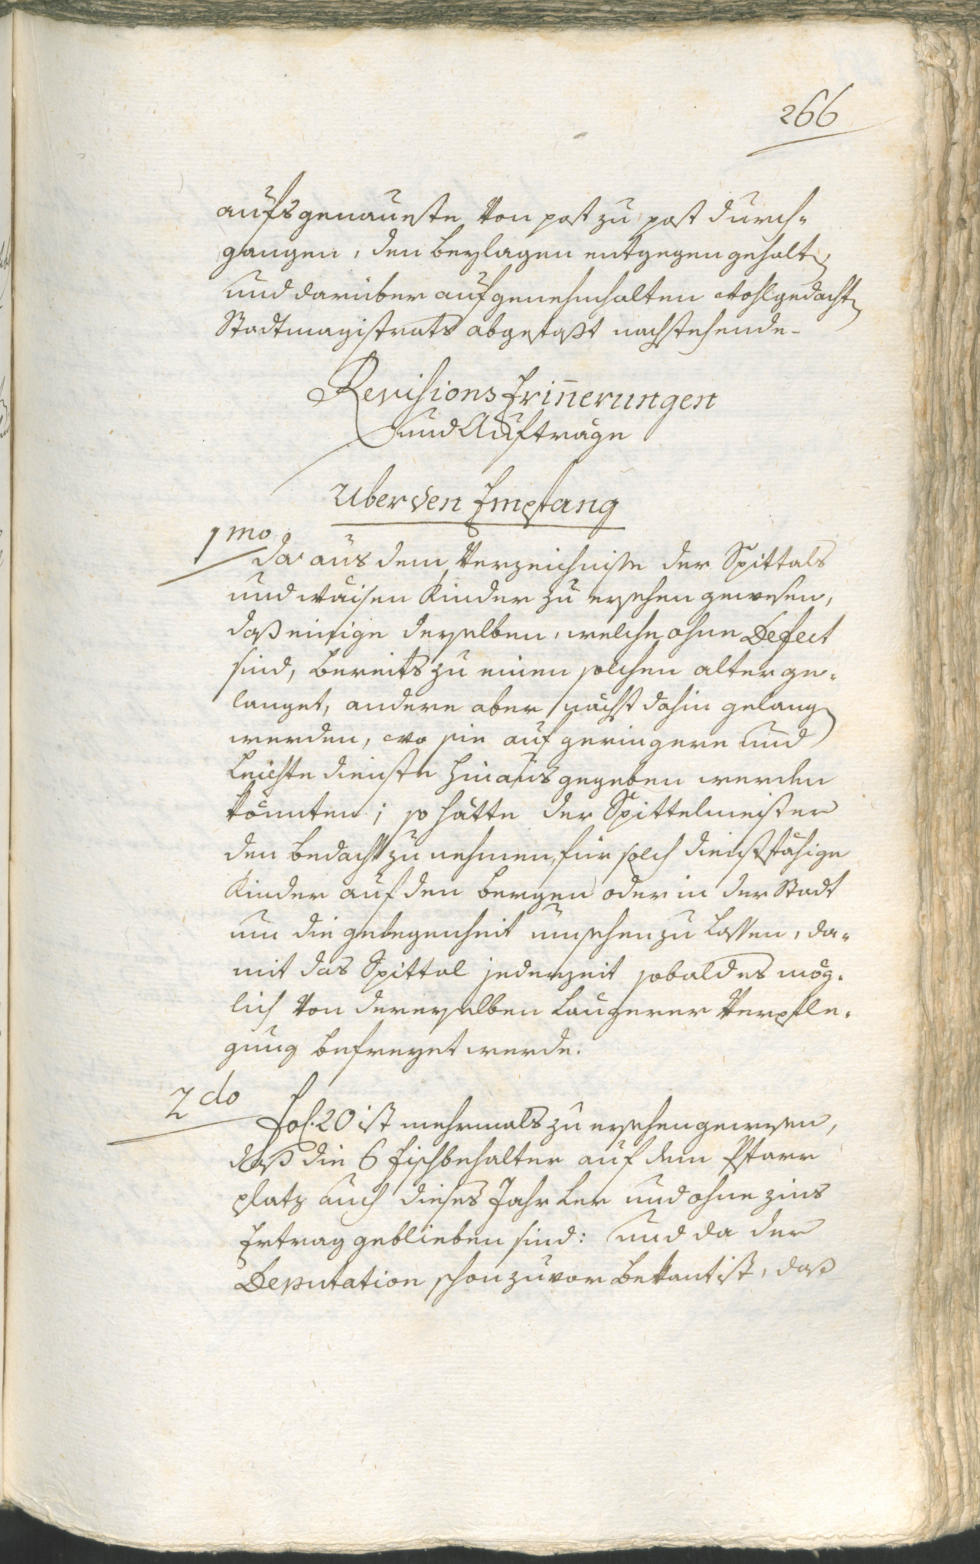 266
aufs genaueste von post zu post durch-
gangen, den beylagen entgegen gehalten,
und darüber auf genehmhalten wohlgedachten
Stadtmagistrats abgefaßt nachstehende-
Revisions Erinnerungen
und Aufträge
Uber den Empfang
1mo
da aus dem Verzeichniße der Spittals
und waisen Kinder zu ersehen gewesen,
daß einige derselben, welche ohne Defect
sind, bereits zu einen solchen alter ge-
langet, andere aber nächst dahin gelangen
werden, wo sie auf geringere und
leichte dienste hinaus gegeben werden
könnten; so hätte der Spittelmeister
den bedacht zu nehmen, für solch dienstfähige
Kinder auf den bergen oder in der Stadt
um die gelegenheit umsehen zu lassen, da-
mit das Spittal jederzeit sobald es mög-
lich von dereselben längerer Verpfle-
gung befreyet werde.
2do
Fol. 20 ist mehrmals zu ersehen gewesen,
daß die 6 fischbehalter auf dem Pfarr
platz auch dieses Jahr leer und ohne zins
Ertrag geblieben sind: und da der
Deputation schon zuvor bekant ist, daß